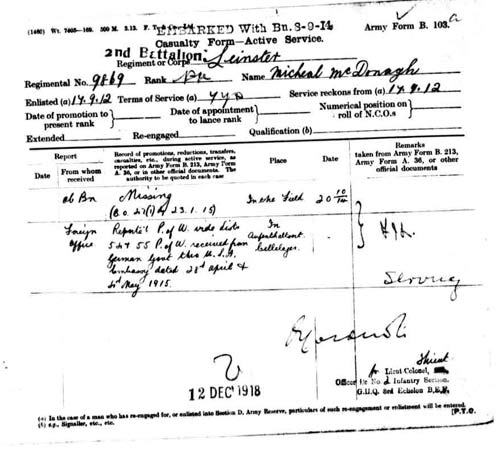 (1460) Wt. 7405—169. 500 M. 3.13.
EMBARKED With Bn. 8-9-14
Army Form B. 103.
Casualty Form—Active Service.
2nd Battalion
Regiment or Corps Leinster
Regimental No. 9869 Rank Name Micheal McDonagh
Enlisted (a) 17.9.12 Terms of Service (a) Service reckons from (a) 17.9.12
Date of promotion to present rank
Date of appointment to lance rank
Numerical position on roll of N.C.Os
Extended Re-engaged Qualification (b)
Report
Date
From whom received
Record of promotions, reductions, transfers, casualties, etc., during active service, as reported on Army Form B. 213, Army Form A. 36, or in other official documents. The authority to be quoted in each case
Place
Date
Remarks
taken from Army Form B. 213, Army Form A. 36, or other official documents
Bn Missing In the Field 20
23.1.15)
Foreign Office
Reported P. of W. vide lists
54 & 55 P. of W. received from
German Govt
Embassy dated 28th April &
May 1915.
In
Serving
12 DEC 1918
Lieut
for Lieut Colonel,
Officer i/c No 2 Infantry Section.
G.H.Q. 3rd Echelon B.E.F.
(a) In the case of a man who has re-engaged for, or enlisted into Section D. Army Reserve, particulars of such re-engagement or enlistment will be entered.
(b) e.g., Signaller, etc., etc.
[P.T.O.